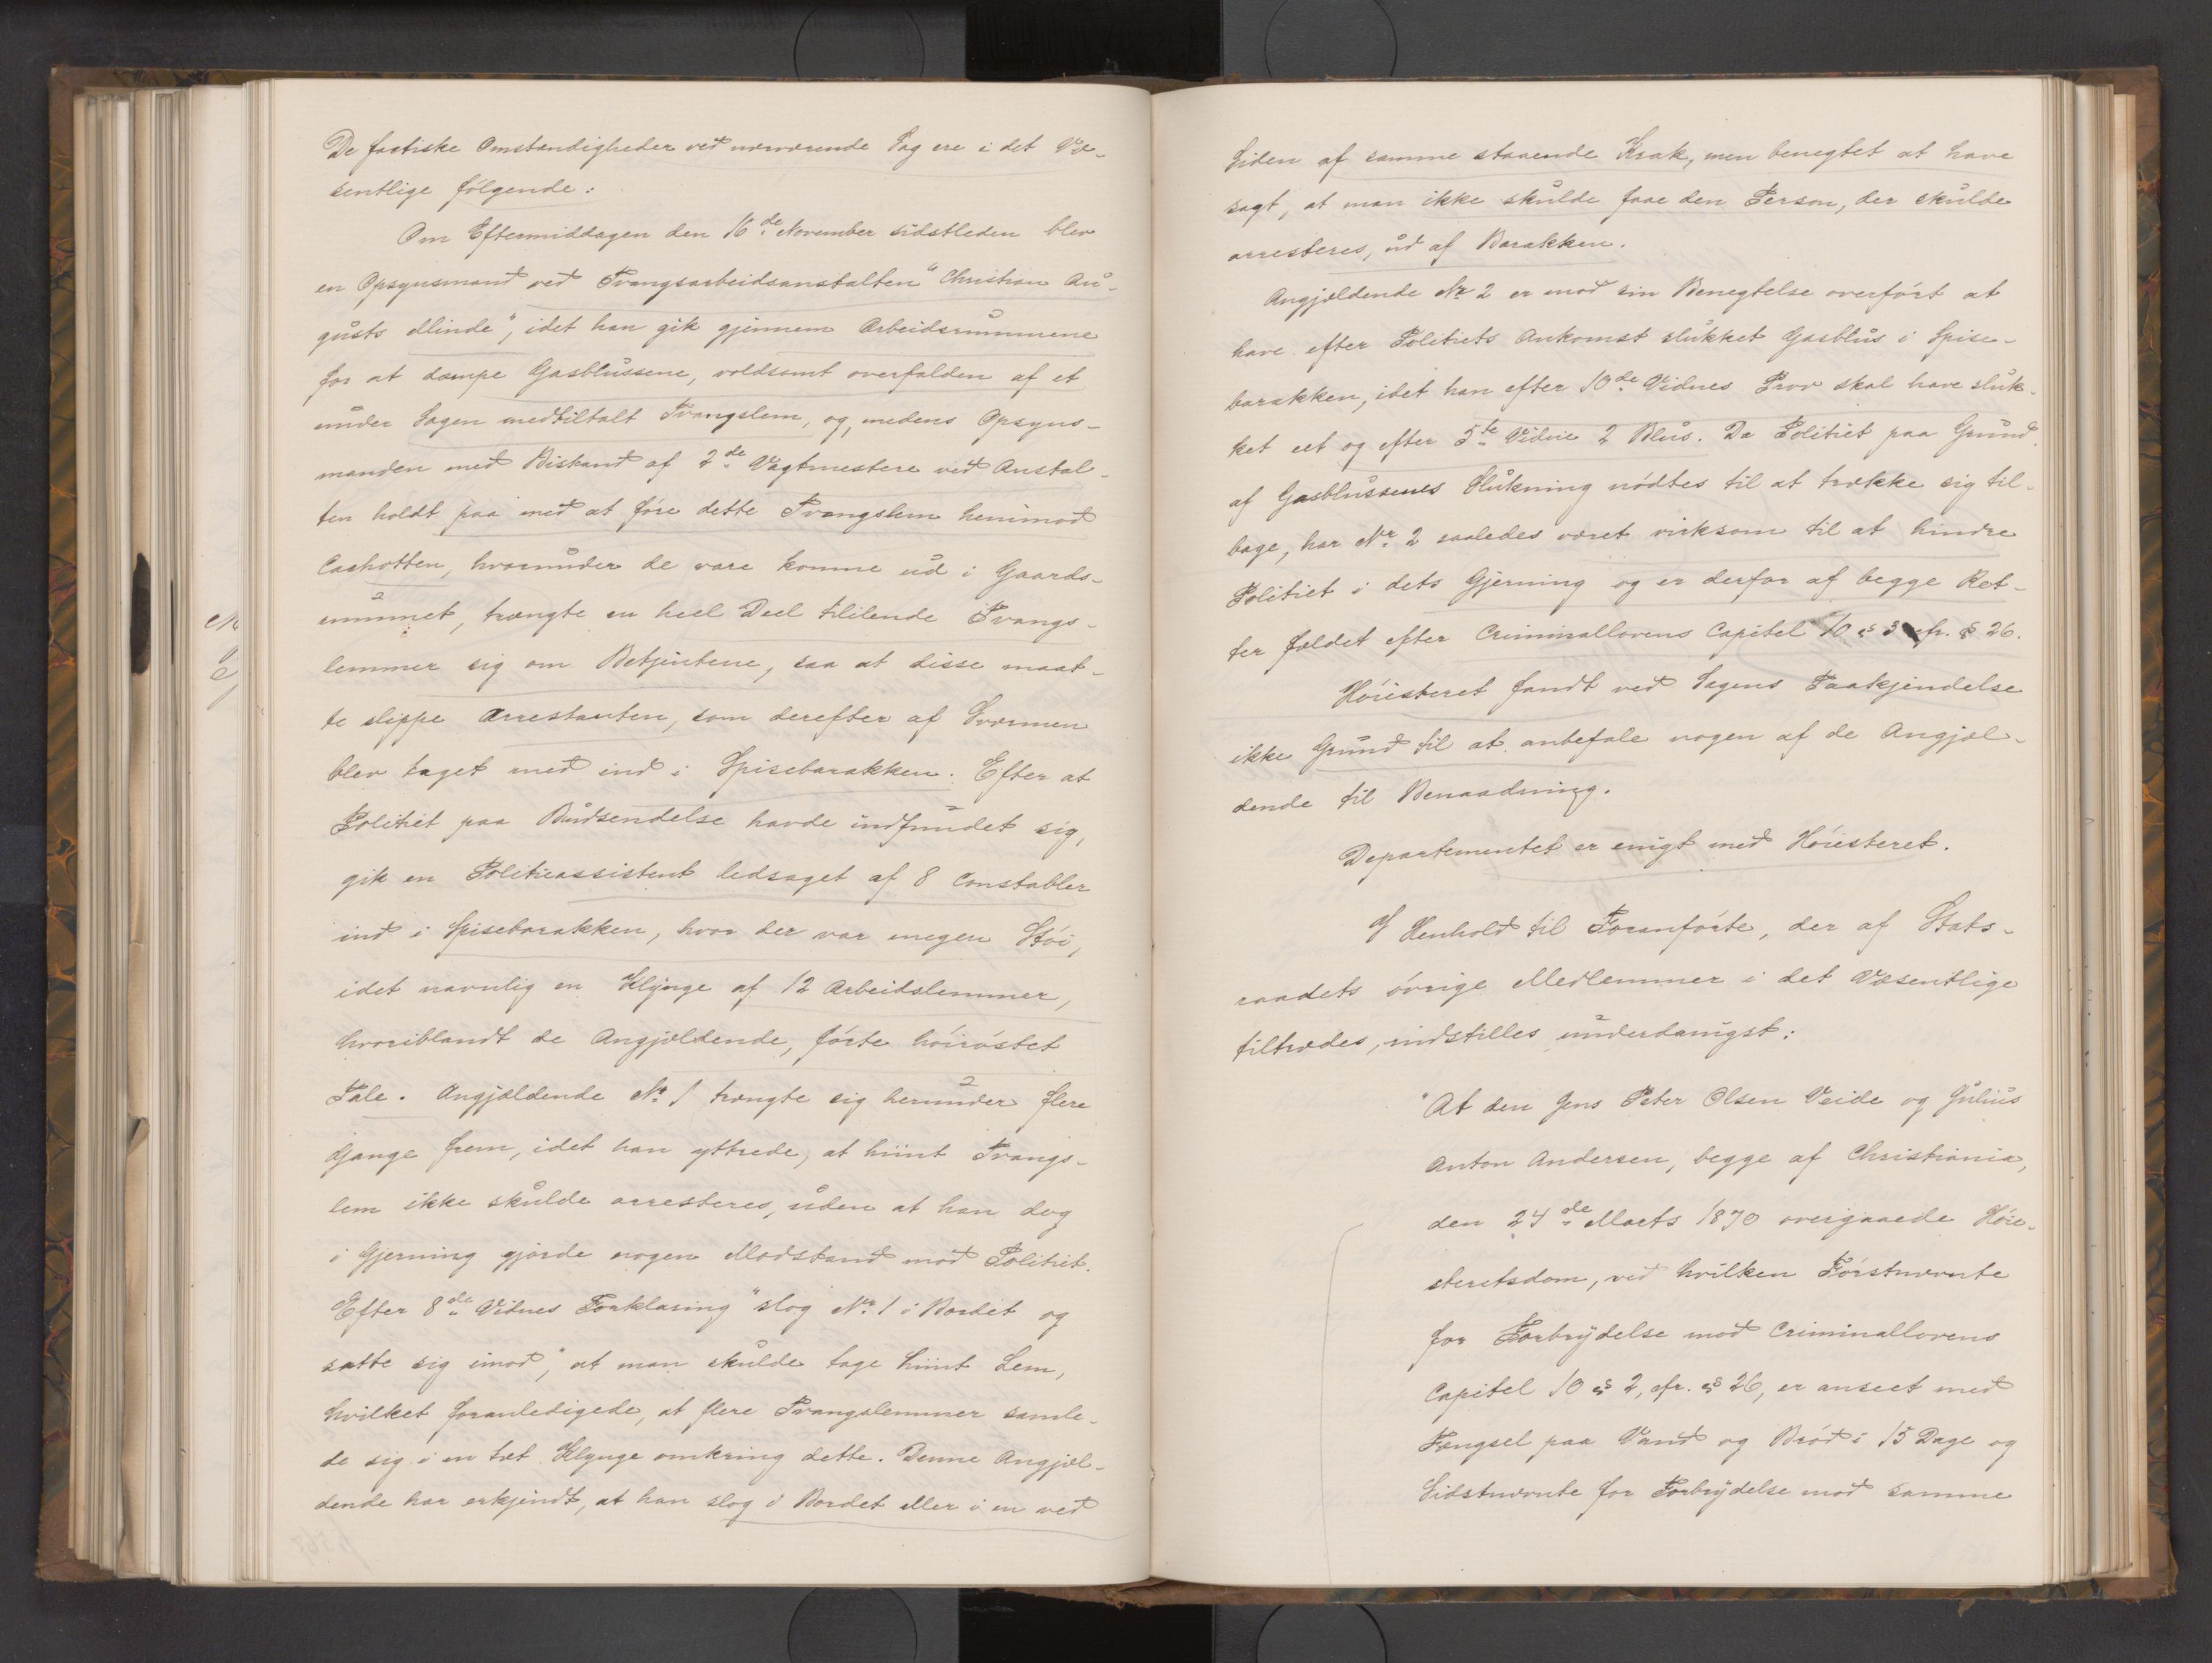 De factiske Omstændigheder ved nærværende Sag ere i det Væ-
sentlige følgende:
Om Eftermiddagen den 16de November sidstleden blev
en Opsynsmand ved Tvangsarbeidsanstalten "Christian Au-
gusts Minde", idet han gik gjennem Arbeidsrummene
for at dæmpe Gasblussene, voldsomt overfalden af et
under Sagen medtiltalt Tvangslem, og, medens Opsyns-
manden med Bistand af 2de Vagtmestere ved Anstal-
ten holdt paa med at føre dette Tvangslem henimod
Cachotten, hvorunder de vare komne ud i Gaards-
rummet, trængte en heel Deel tililende Tvangs-
lemmer sig om Betjentene, saa at disse maat-
te slippe Arrestanten, som derefter af Sværmen
blev taget med ind i Spisebarakken. Efter at
Politiet paa Budsendelse havde indfundet sig,
gik en Politieassistent ledsaget af 8 Constabler
ind i Spisebarakken, hvor der var megen Støi,
idet navnlig en Klynge af 12 Arbeidslemmer,
hvoriblandt de Angjældende, førte høirøstet
Tale. Angjældende Nr. 1 trængte sig herunder flere
Gange frem, idet han yttrede, at hiint Tvangs-
lem ikke skulde arresteres, uden at han dog
i Gjerning gjorde nogen Modstand mod Politiet.
Efter 8de Vidnes Forklaring "slog Nr. 1 i Bordet og
satte sig imod", at man skulde tage hiint Lem,
hvilket foranledigede, at flere Tvangslemmer samle-
de sig i en tæt Klynge omkring dette. Denne Angjæl-
dende har erkjendt, at han slog i Bordet eller i en ved
Siden af samme staaende Krak, men benegtet at have
sagt, at man ikke skulde faae den Person, der skulde
arresteres, ud af Barakken.
Angjældende Nr. 2 er mod sin Benegtelse overført at
have efter Politiets Ankomst slukket Gasblus i Spise-
barakken, idet han efter 10de Vidnes Prov skal have sluk-
ket eet og efter 5te Vidne 2 Blus. Da Politiet paa Grund
af Gasblussenes Slukning nødtes til at trække sig til-
bage, har Nr. 2 saaledes været virksom til at hindre
Politiet i dets Gjerning og er derfor af begge Ret-
ter fældet efter Criminallovens Capitel 10 § 3 cfr. § 26.
Høiesteret fandt ved Sagens Paakjendelse
ikke Grund til at anbefale nogen af de Angjæl-
dende til Benaadning.
Departementet er enigt med Høiesteret.
I Henhold til Foranførte, der af Stats-
raadets øvrige Medlemmer i det Væsentlige
tiltrædes, indstilles underdanigst:
"At den Jens Peter Olsen Veide og Julius
Anton Andersen, begge af Christiania,
den 24de Marts 1870 overgaaede Høie-
steretsdom, ved hvilken Førstnævnte
for Forbrydelse mod Criminallovens
Capitel 10 § 2, cfr. § 26, er anseet med
Fængsel paa Vand og Brød i 15 Dage og
Sidstnævnte for Forbrydelse mod samme